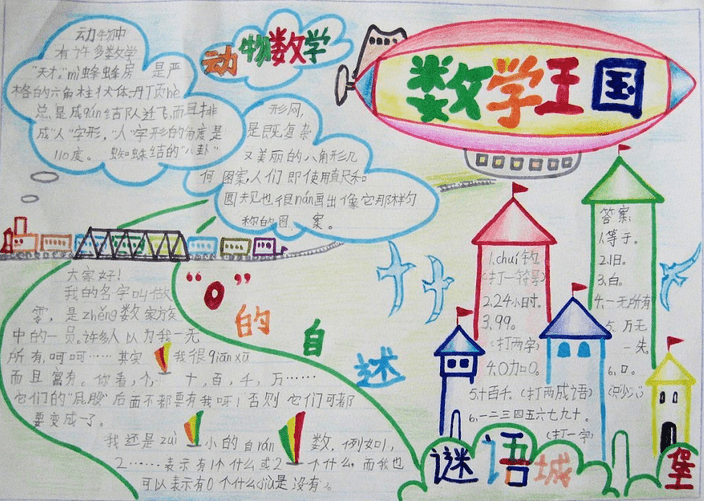 数学王国
动物数学
动物中
有许多数学
“天才”mì蜂蜂房 是严
格的六角柱状体丹顶hè
总是成qún结队迁飞,而且排
成“人”字形,“人”字形的角度是
110度。 蜘蛛结的“八卦”
形网,
是既复杂
又美丽的八角形几
何图案,人们即使用直尺和
圆规也很nán画出像它那样匀
称的图案。
“0”的自述
大家好!
我的名字叫做
零,是zhěng数家族
中的一员。许多人以为我一无
所有,呵呵……其实 我很qiān xū
而且富有。你看,个,一十,百,千,万……
它们的“屁股”后面不都要有我呀!否则它们可都
要变成一了。
我还是zuì小的自rán数,例如1,
2……表示有1个什么或2个什么,而我也
可以表示有0个什么jiù是没有。
1.chuí钩
(打一符号)
2.24小时。
3.99。
(打两字)
4.0加0。
5.十百千。(打两成语)
6.一二三四五六七九十。
(打一字)
答案:
1.等于。
2.旧。
3.白。
4.一无所有
5.万无
一失。
6.口。
(只少八)
谜语城堡